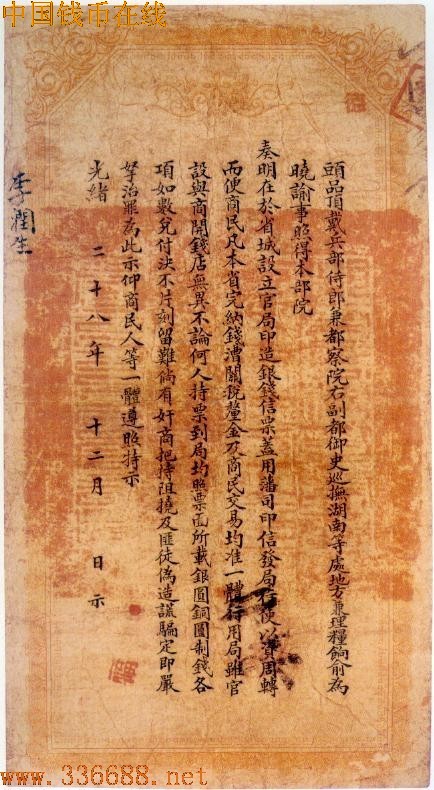 中国钱币在线
頭品頂戴兵部侍郎兼都察院右副都御史巡撫湖南等處地方兼理糧餉俞為
曉諭事照得本部院
奏明在於省城設立官局印造銀錢信票蓋用藩司印信發局行使以資周轉
而便商民凡本省完納錢漕關稅釐金及商民交易均准一體行用局雖官
設與商開錢店無異不論何人持票到局均照票面所載銀圓銅圓制錢各
項如數兌付決不片刻留難倘有奸商把持阻撓及匪徒偽造謊騙定即嚴
拏治罪為此示仰商民人等一體遵照特示
光緒二十八年十二月日示
李潤生
www.336688.net